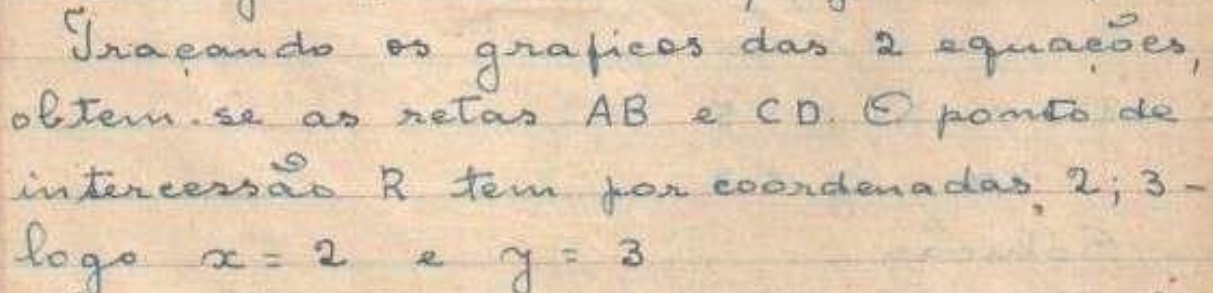 Traçando os graficos das 2 equações,
obtem-se as retas AB e CD. O ponto de
intercessão R tem por coordenadas, 2; 3 -
logo x = 2 e y = 3